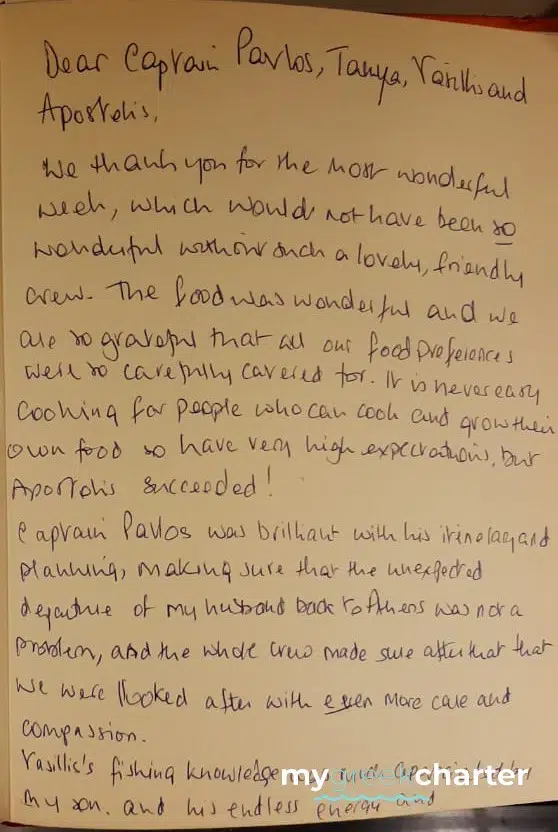 Dear Captain Pavlos, Tanya, Vasillis and
Apostolis,
We thank you for the most wonderful
week, which would not have been so
wonderful without such a lovely, friendly
crew. The food was wonderful and we
are so grateful that all our food preferences
were so carefully catered for. It is never easy
cooking for people who can cook and grow their
own food so have very high expectations, but
Apostolis succeeded!
Captain Pavlos was brilliant with his itinerary and
planning, making sure that the unexpected
departure of my husband back to Athens was not a
problem, and the whole crew made sure after that that
we were looked after with even more care and
compassion.
Vasillis's fishing knowledge was much appreciated by
my son. and his endless energy and
my greek charter